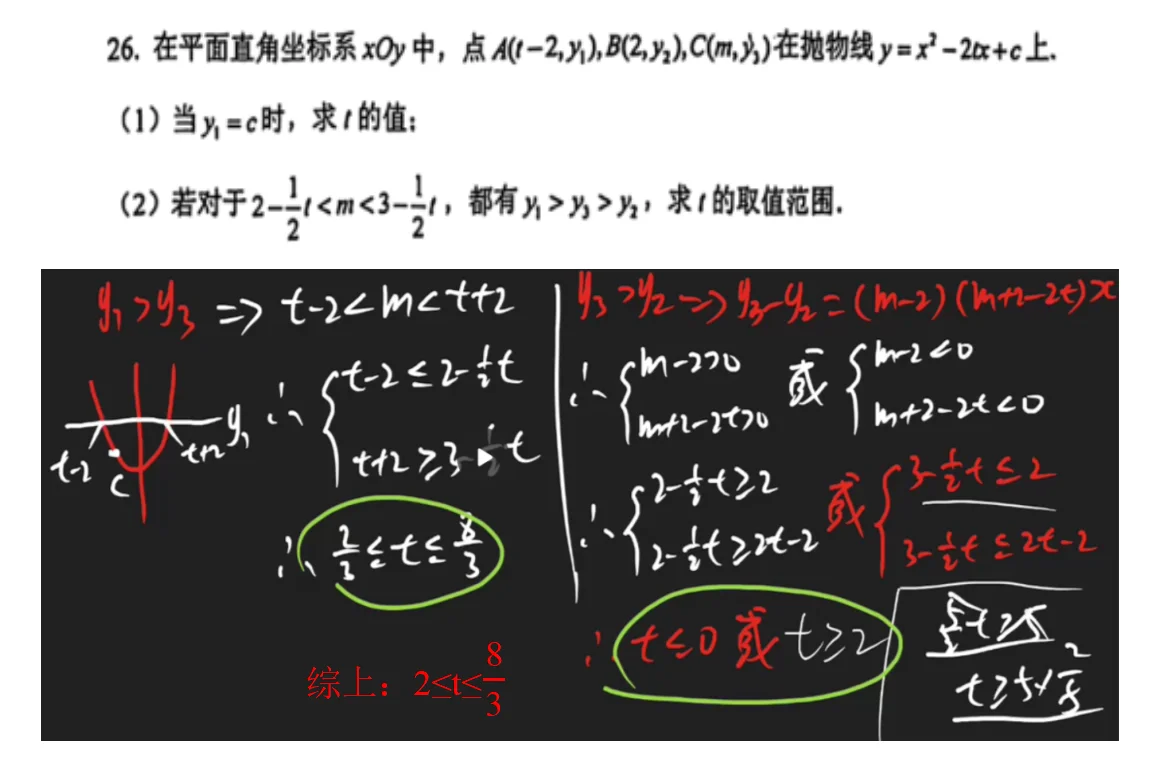 26. 在平面直角坐标系 xOy 中，点 A(t−2,y₁),B(2,y₂),C(m,y₃) 在抛物线 y=x²−2tx+c 上.
（1）当 y₁=c 时，求 t 的值；
（2）若对于 2−1/2t<m<3−1/2t，都有 y₁>y₃>y₂，求 t 的取值范围.
y₁>y₃ ⇒ t-2<m<t+2
∴ { t-2≤2-½t
t+2≥3-½t
y₁
t-2
t+2
C
∴ 2/3≤t≤8/3
综上：2≤t≤8/3
y₃>y₂ ⇒ y₃-y₂=(m-2)(m+2-2t)
∴ { m-2>0 或 { m-2<0
m+2-2t>0 m+2-2t<0
∴ { 2-½t≥2 或 { 3-½t≤2
2-½t≥2t-2 3-½t≤2t-2
∴ t≤0 或 t≥2